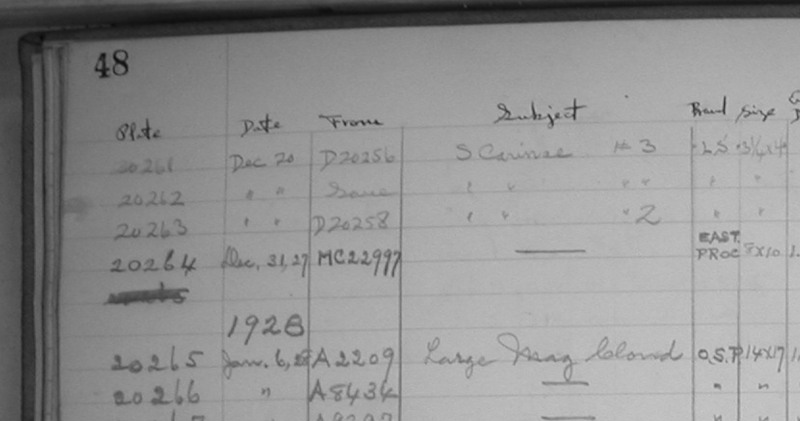 48
Plate Date From Subject Brand Size
20261 Dec 20 D20256 S Carinae # 3 L S 3¼x4
20262 " " Same " " " "  " "
20263 " " D20258 " " " 2 " "
20264 Dec. 31, 27 MC22997 — EAST. PROC 8x10
1928
20265 Jan. 6, 28 A2209 Large Mag Cloud O.S.P. 14x17
20266 " A8434 — " "